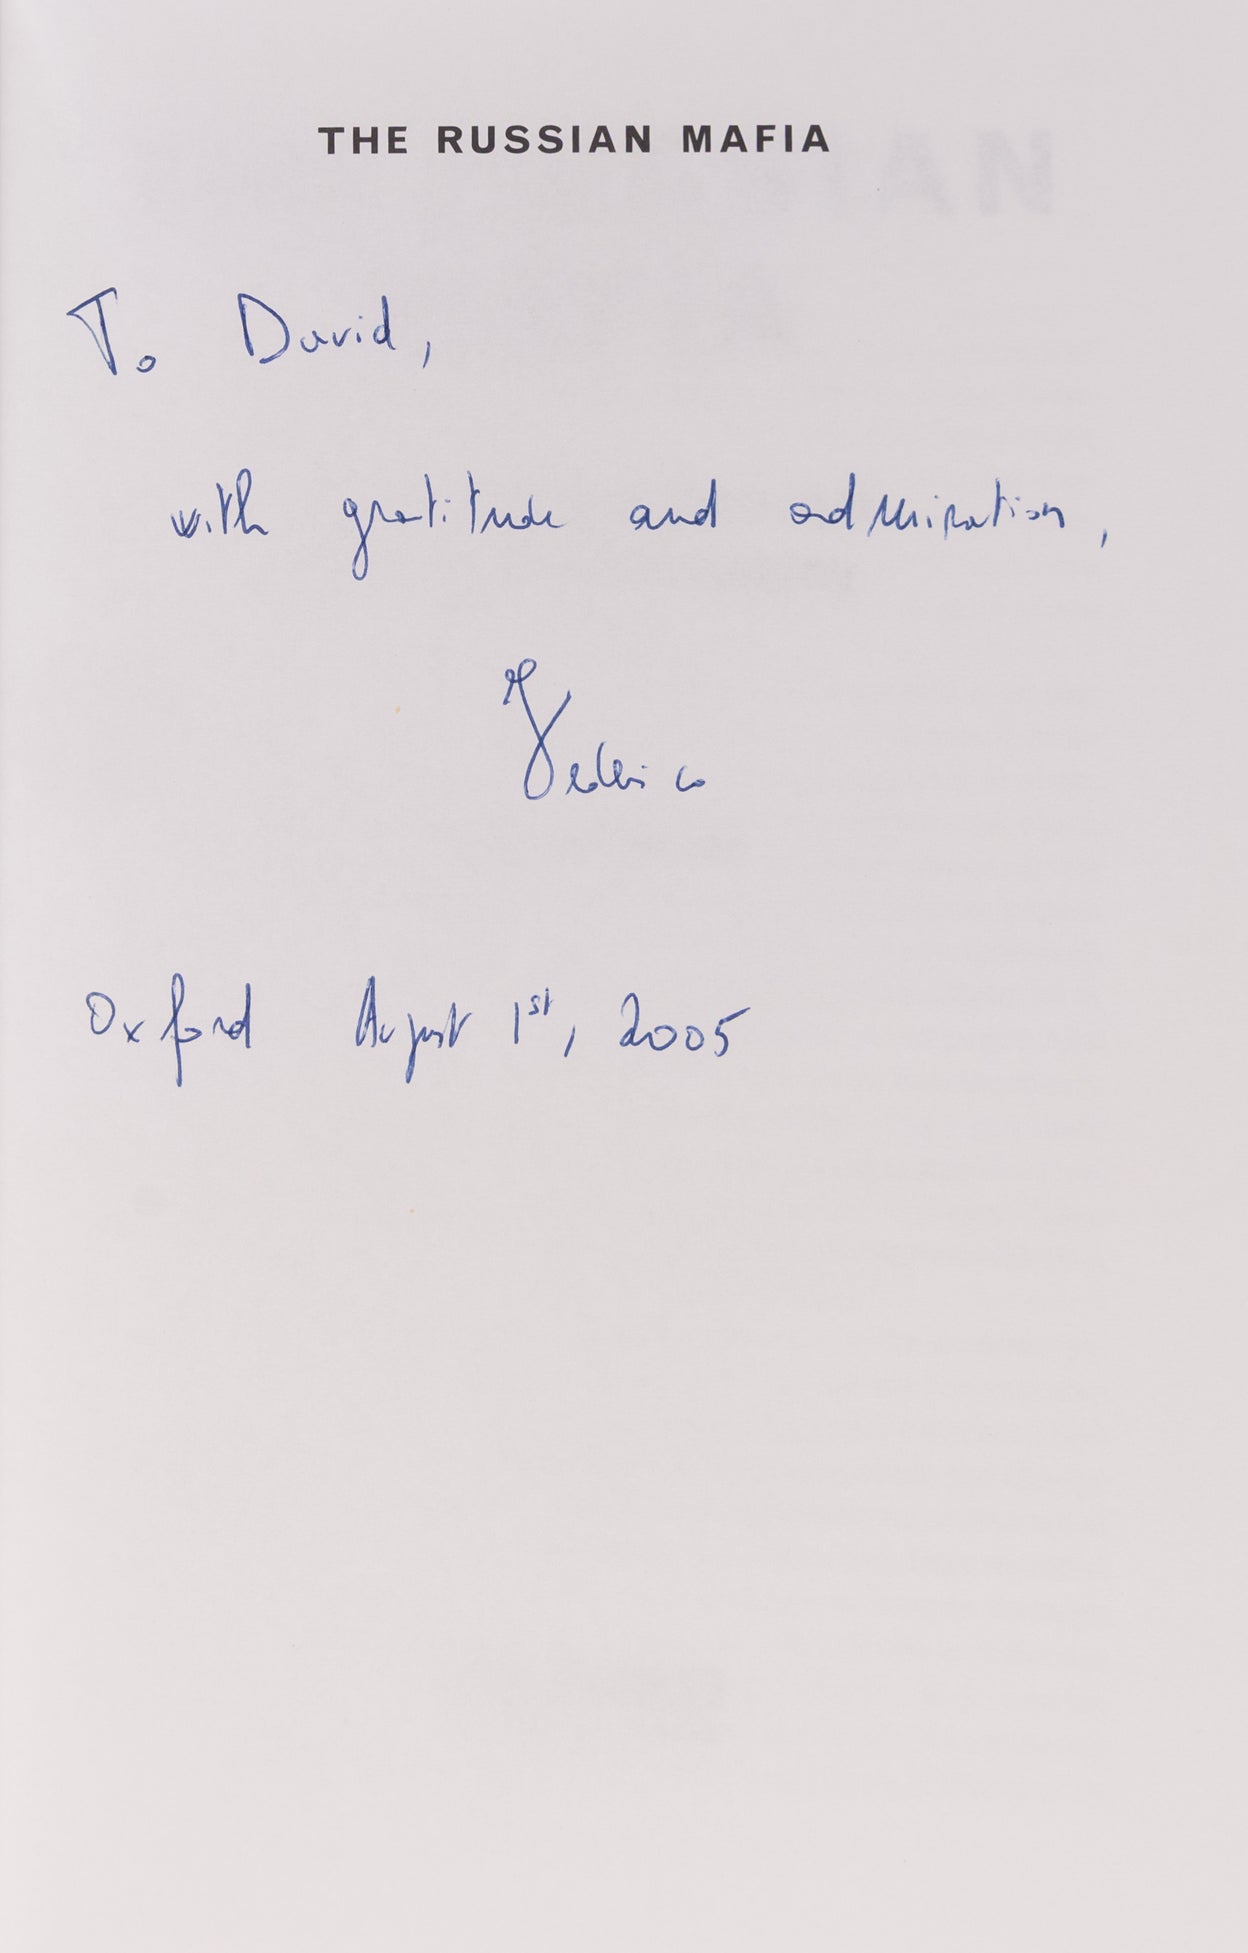 THE RUSSIAN MAFIA
To David,
with gratitude and admiration,
Federico
Oxford August 1st, 2005